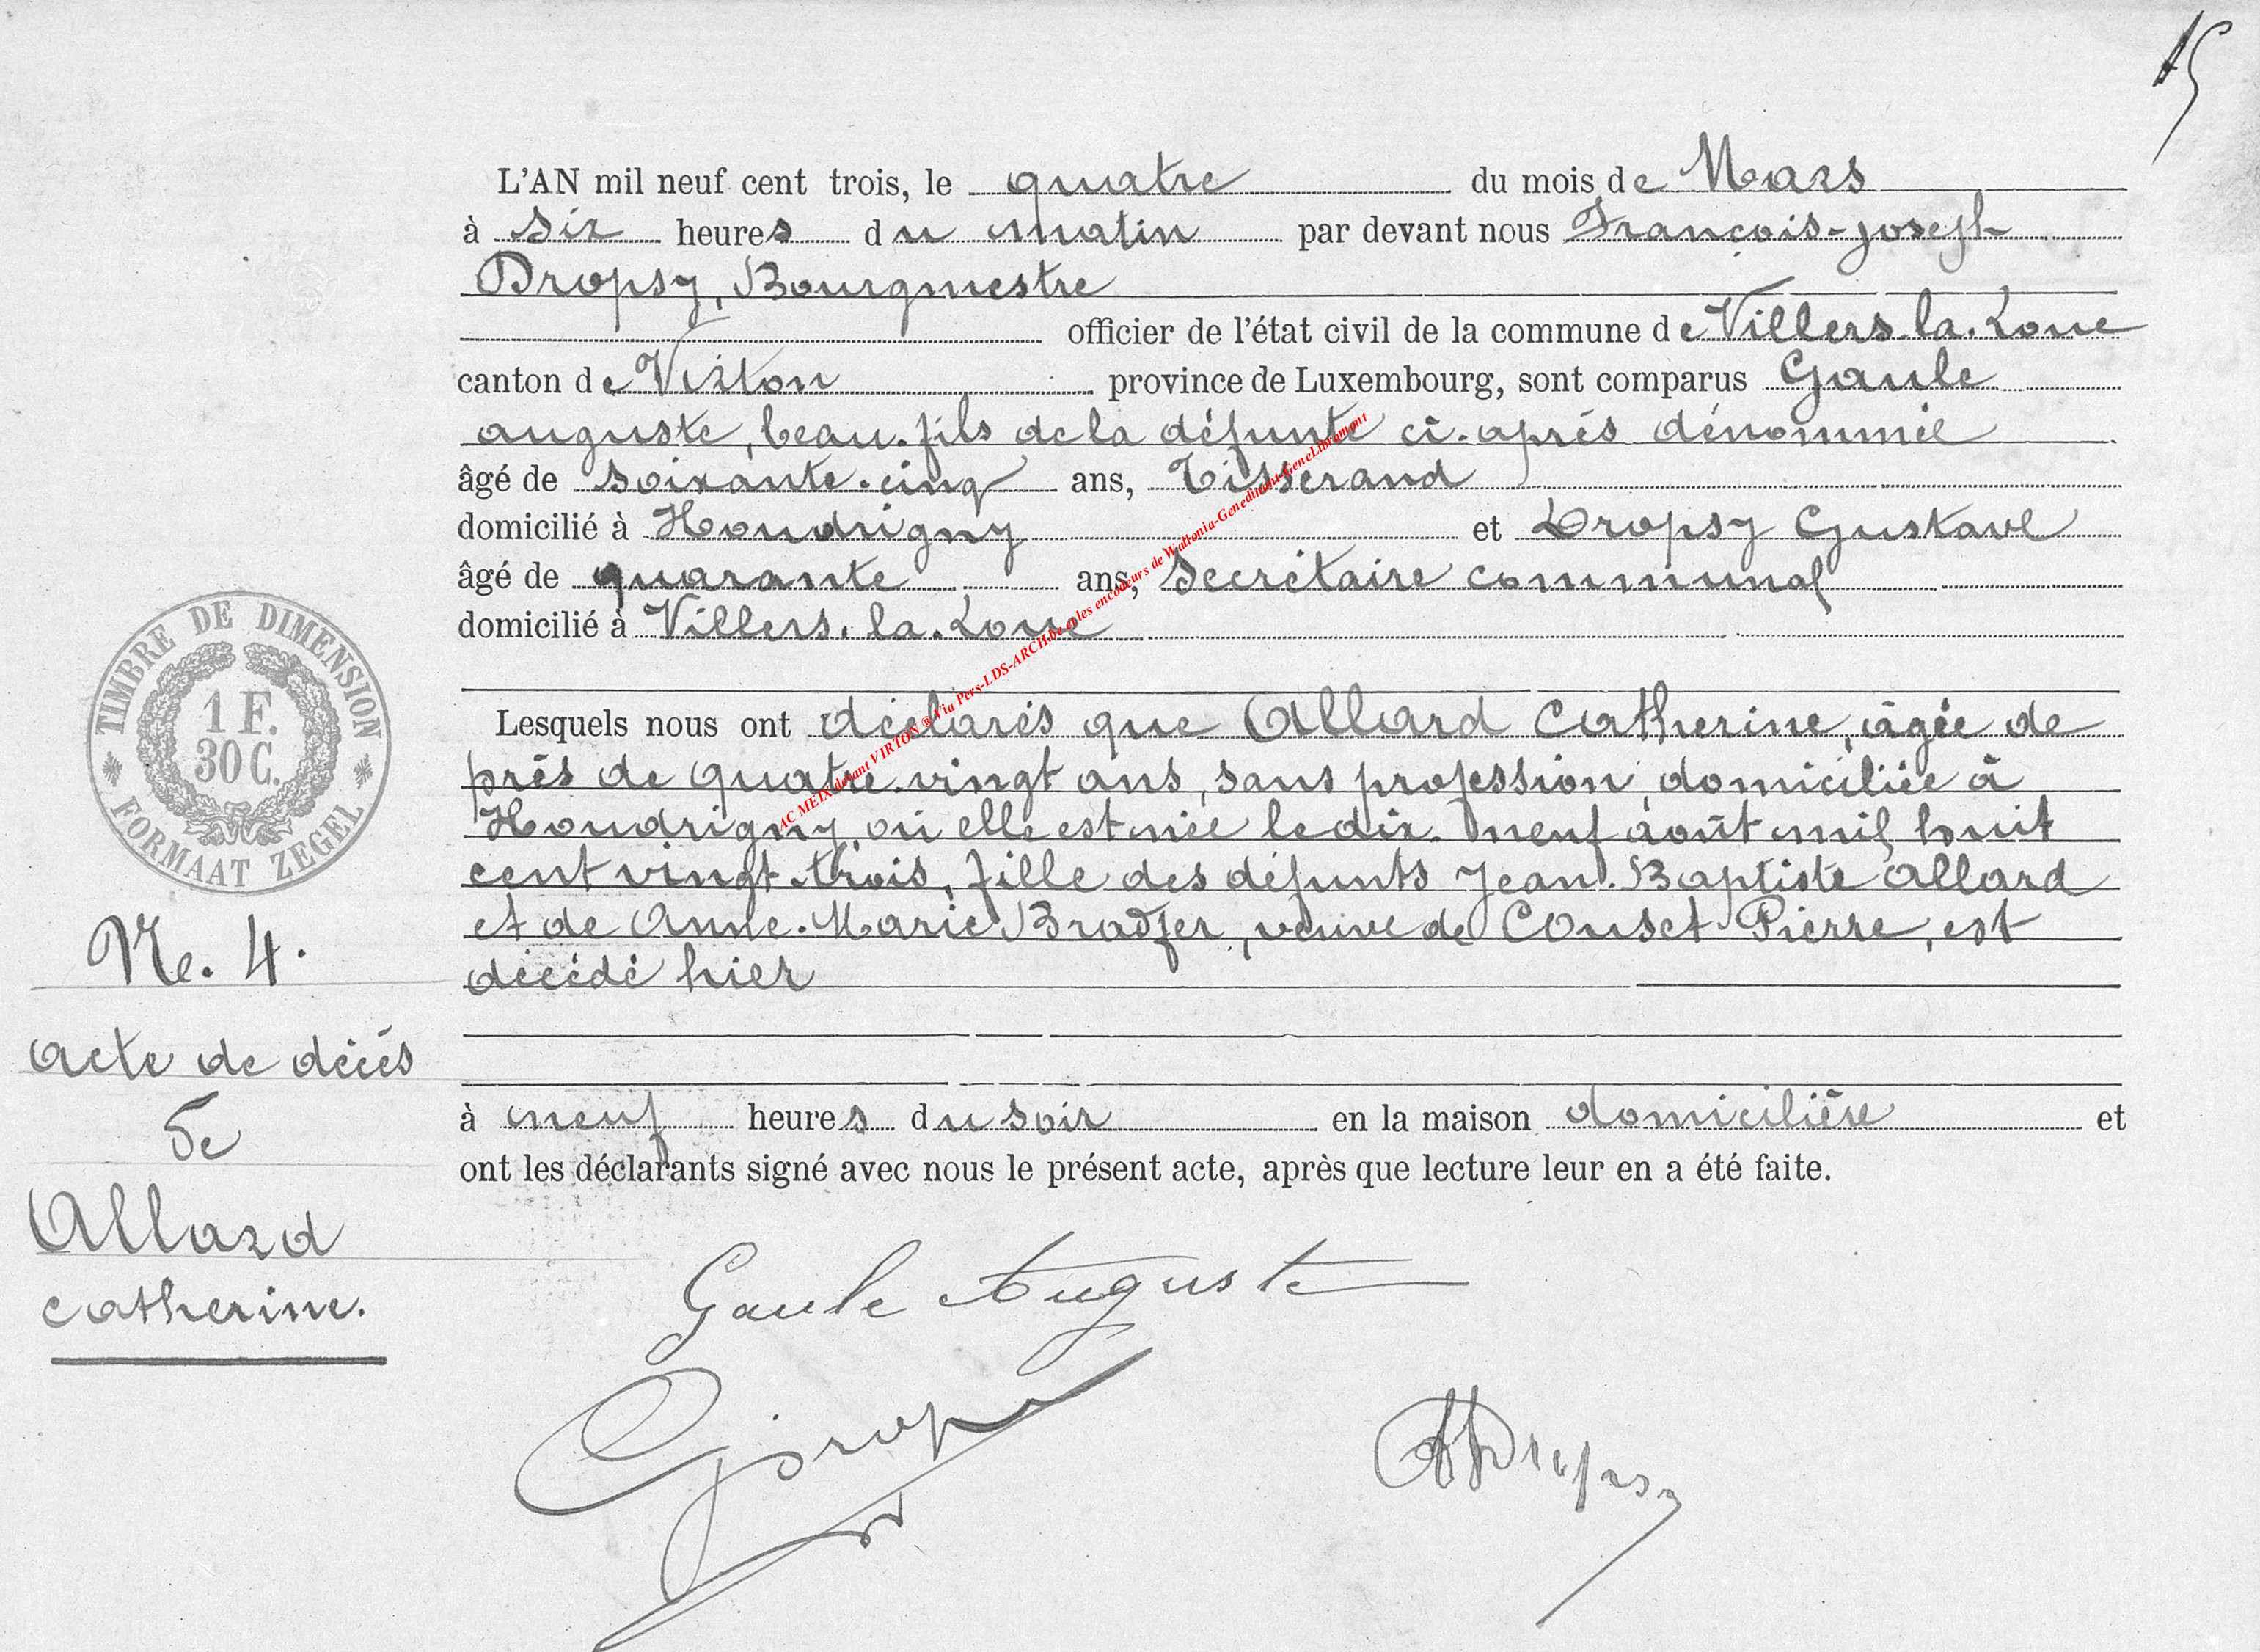 15
L'AN mil neuf cent trois, le quatre du mois de Mars
à six heures du matin par devant nous François-joseph
Dropsy, Bourgmestre
officier de l'état civil de la commune de Villers-la-Loue
canton de Virton province de Luxembourg, sont comparus Gaule
auguste, beau-fils de la défunte ci-après dénommée
âgé de soixante-cinq ans, Tisserand
domicilié à Houdrigny et Dropsy Gustave
âgé de quarante ans, Secrétaire communal
domicilié à Villers-la-Loue
Lesquels nous ont déclarés que Allard Catherine, âgée de
près de quatre-vingt ans, sans profession, domiciliée à
Houdrigny, où elle est née le dix-neuf août mil huit
cent vingt-trois, fille des défunts Jean-Baptiste Allard
et de Anne-Marie Bradfer, veuve de Couset Pierre, est
décédé hier
à neuf heures du soir en la maison domicilière et
ont les déclarants signé avec nous le présent acte, après que lecture leur en a été faite.
TIMBRE DE DIMENSION
1 F.
30 C.
FORMAAT ZEGEL
No. 4.
acte de décès
de
Allard
catherine.
Gaule Auguste
AC MEIX devant VIRTON ® Via Pers-LDS-ARCH.be et les encodeurs de Wallonia-Genedinant-GeneLibramont